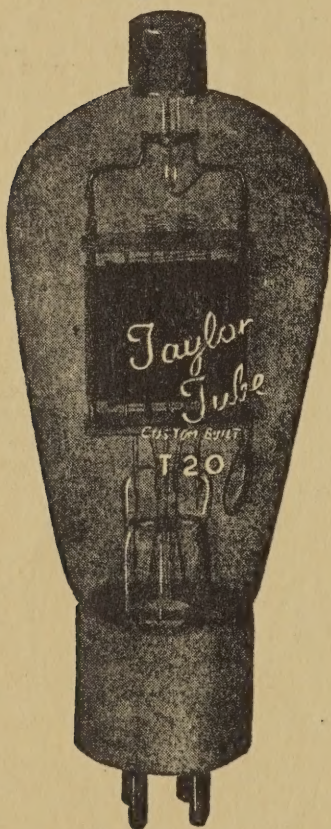 Taylor
Tube
CUSTOM BUILT
T 20